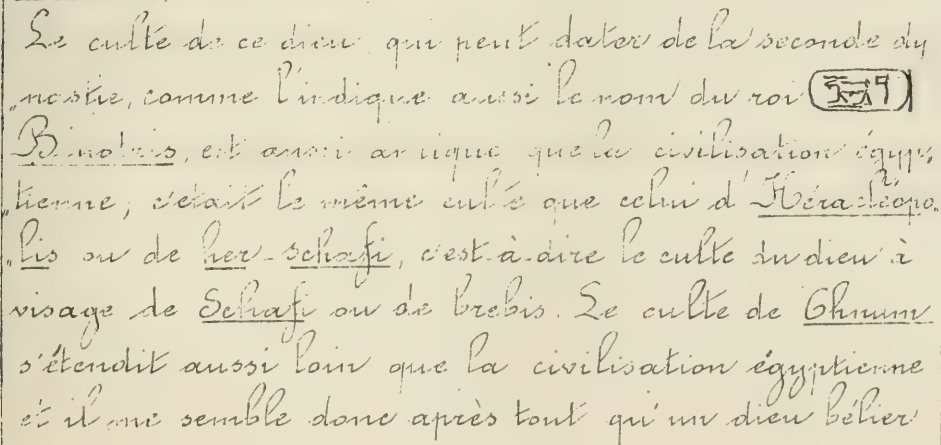 Le culte de ce dieu qui peut dater de la seconde dy
„nastie, comme l'indique aussi le nom du roi
Binothris, est aussi antique que la civilisation égyp„
„tienne; c'était le même culte que celui d'Héracléopo„
„lis ou de her-schafi, c'est-à-dire le culte du dieu à
visage de Schafi ou de brebis. Le culte de Chnum
s'étendit aussi loin que la civilisation égyptienne
et il me semble donc après tout qu'un dieu bélier